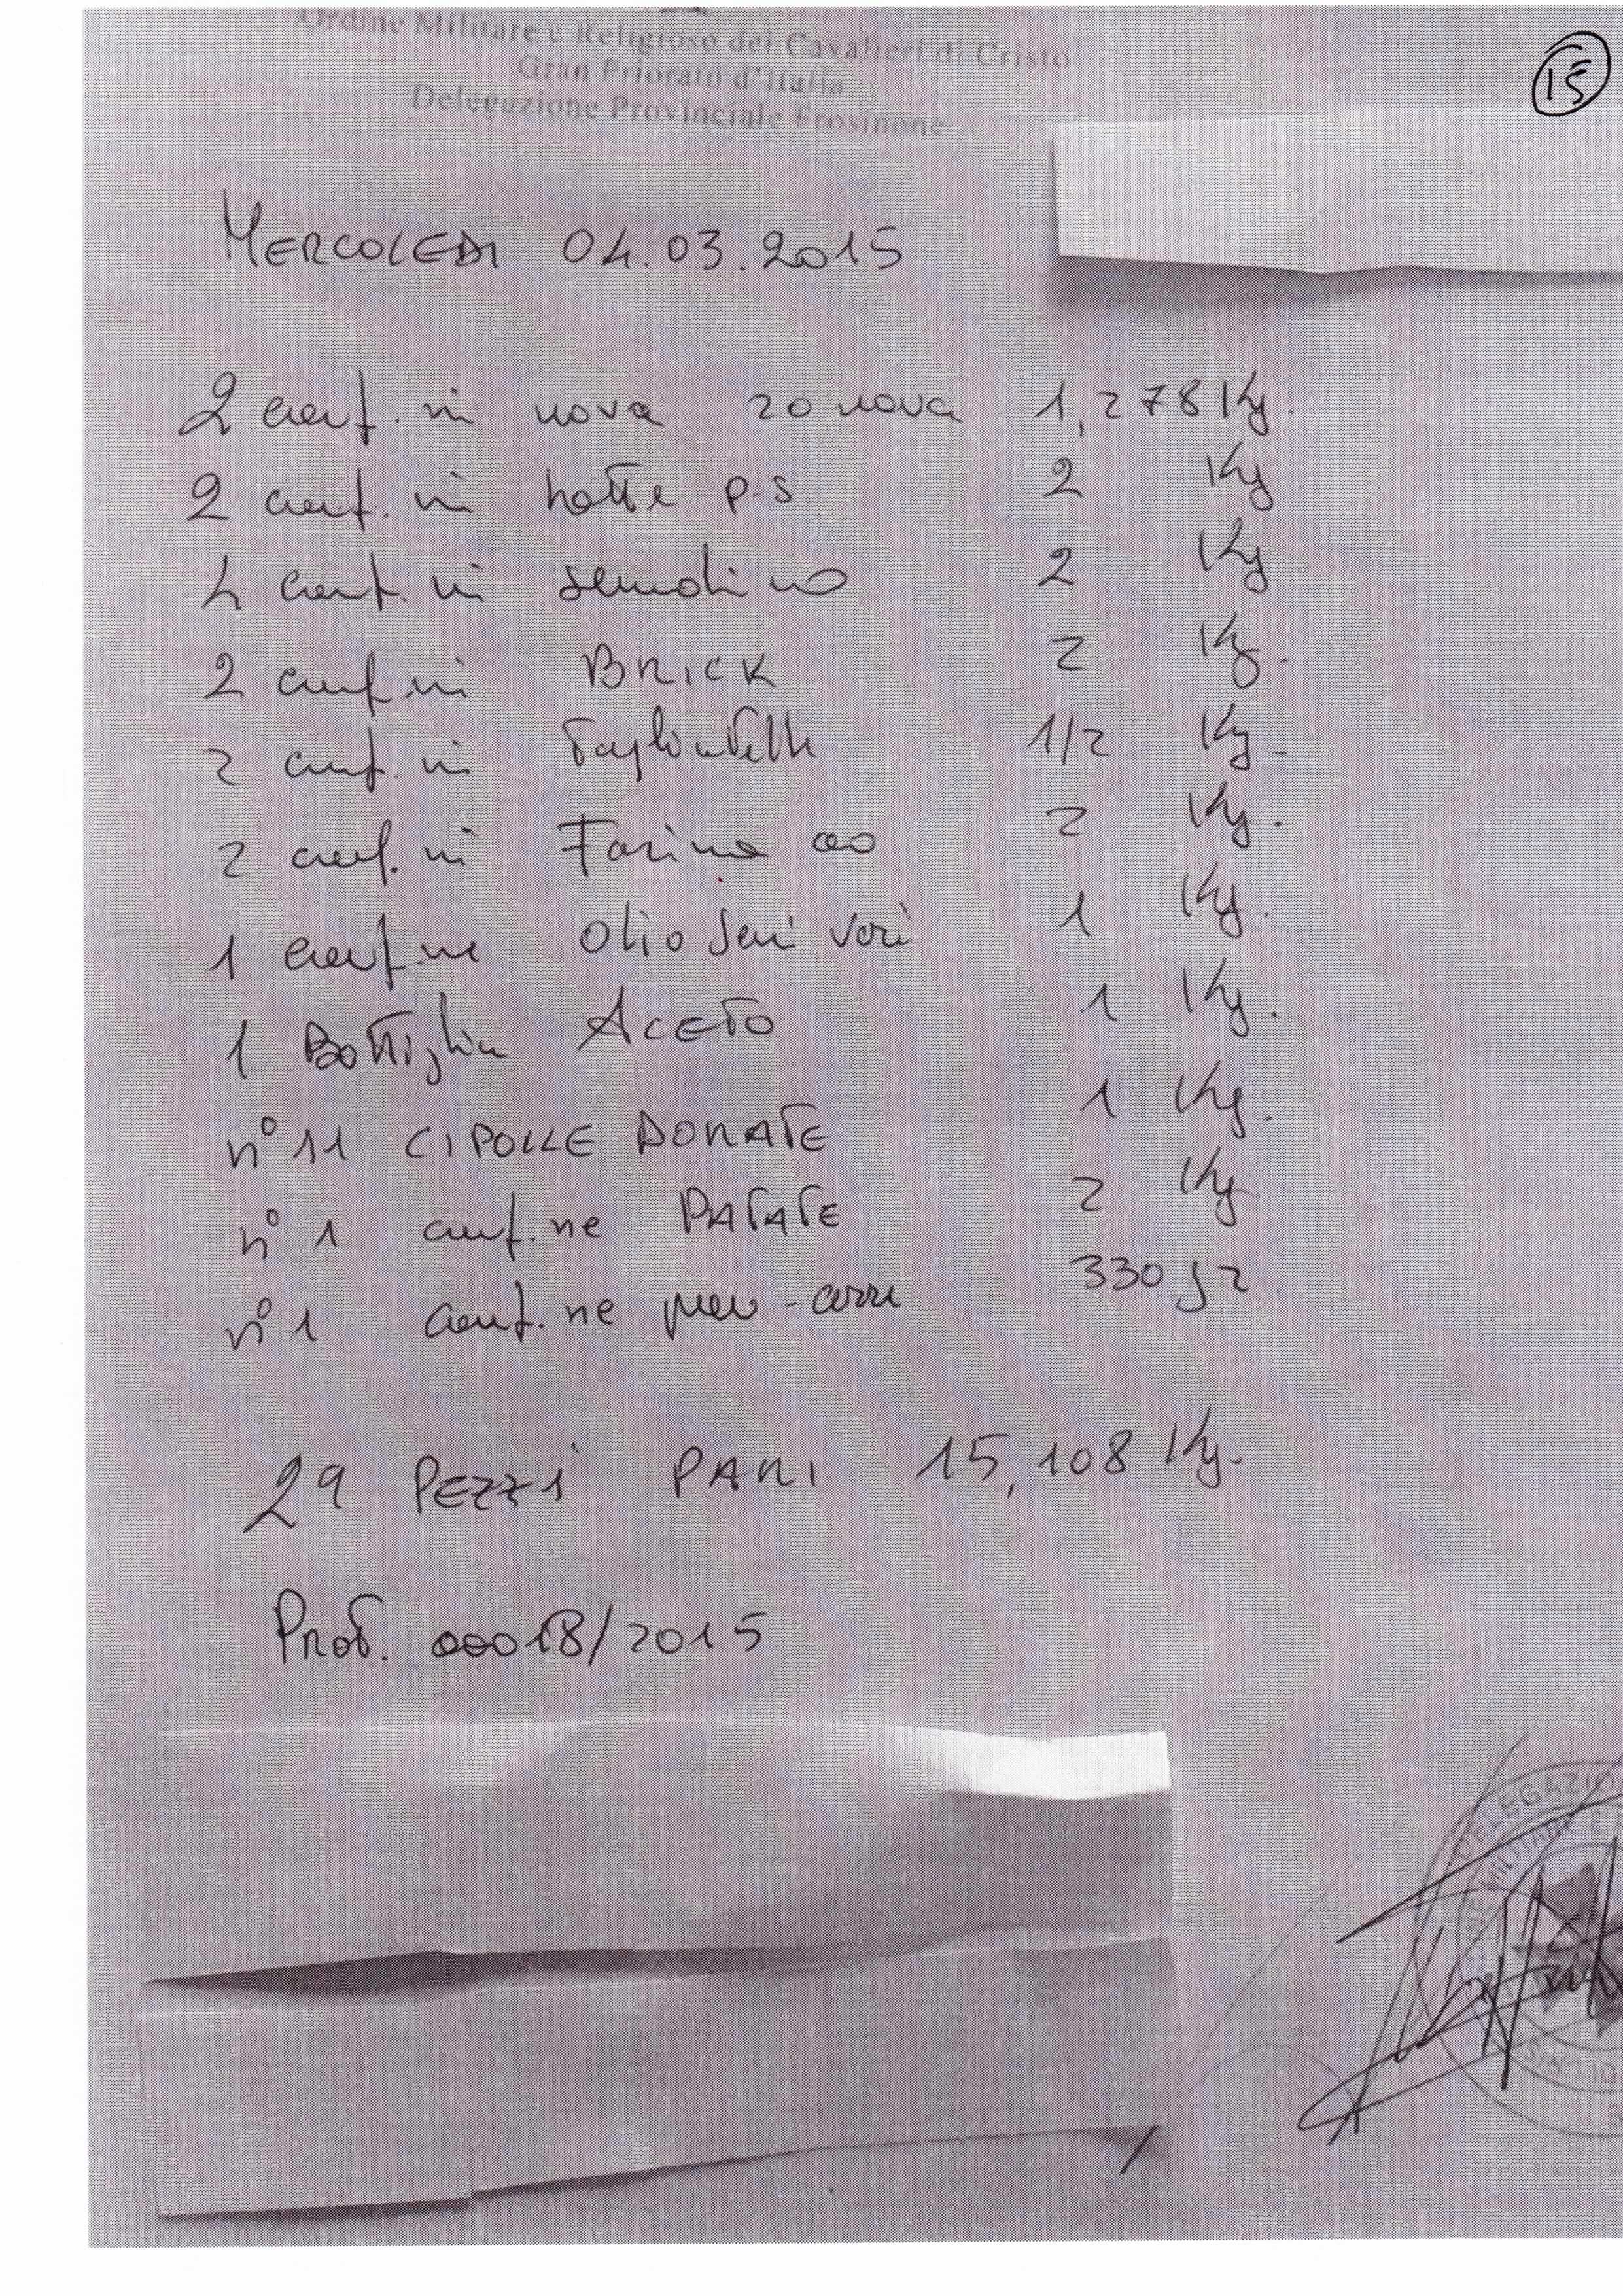 Ordine Militare e Religioso dei Cavalieri di Cristo
Gran Priorato d'Italia
Delegazione Provinciale Frosinone
15
MERCOLEDI 04.03.2015
2 conf.ni uova 20 uova 1,278 Kg.
2 conf.ni latte p.s. 2 Kg
4 conf.ni semolino 2 Kg
2 conf.ni BRICK 2 Kg.
2 conf.ni Tagliatelle 1/2 Kg.
2 conf.ni Farina 00 2 Kg.
1 conf.ne Olio semi vari 1 Kg.
1 Bottiglia ACETO 1 Kg.
n° 11 CIPOLLE DORATE 1 Kg.
n° 1 conf.ne PATATE 2 Kg
n° 1 conf.ne 330 gr
29 PEZZI PARI 15,108 Kg.
Prot. 00018/2015
DELEGAZIO
MILITARE E
DI CRIS